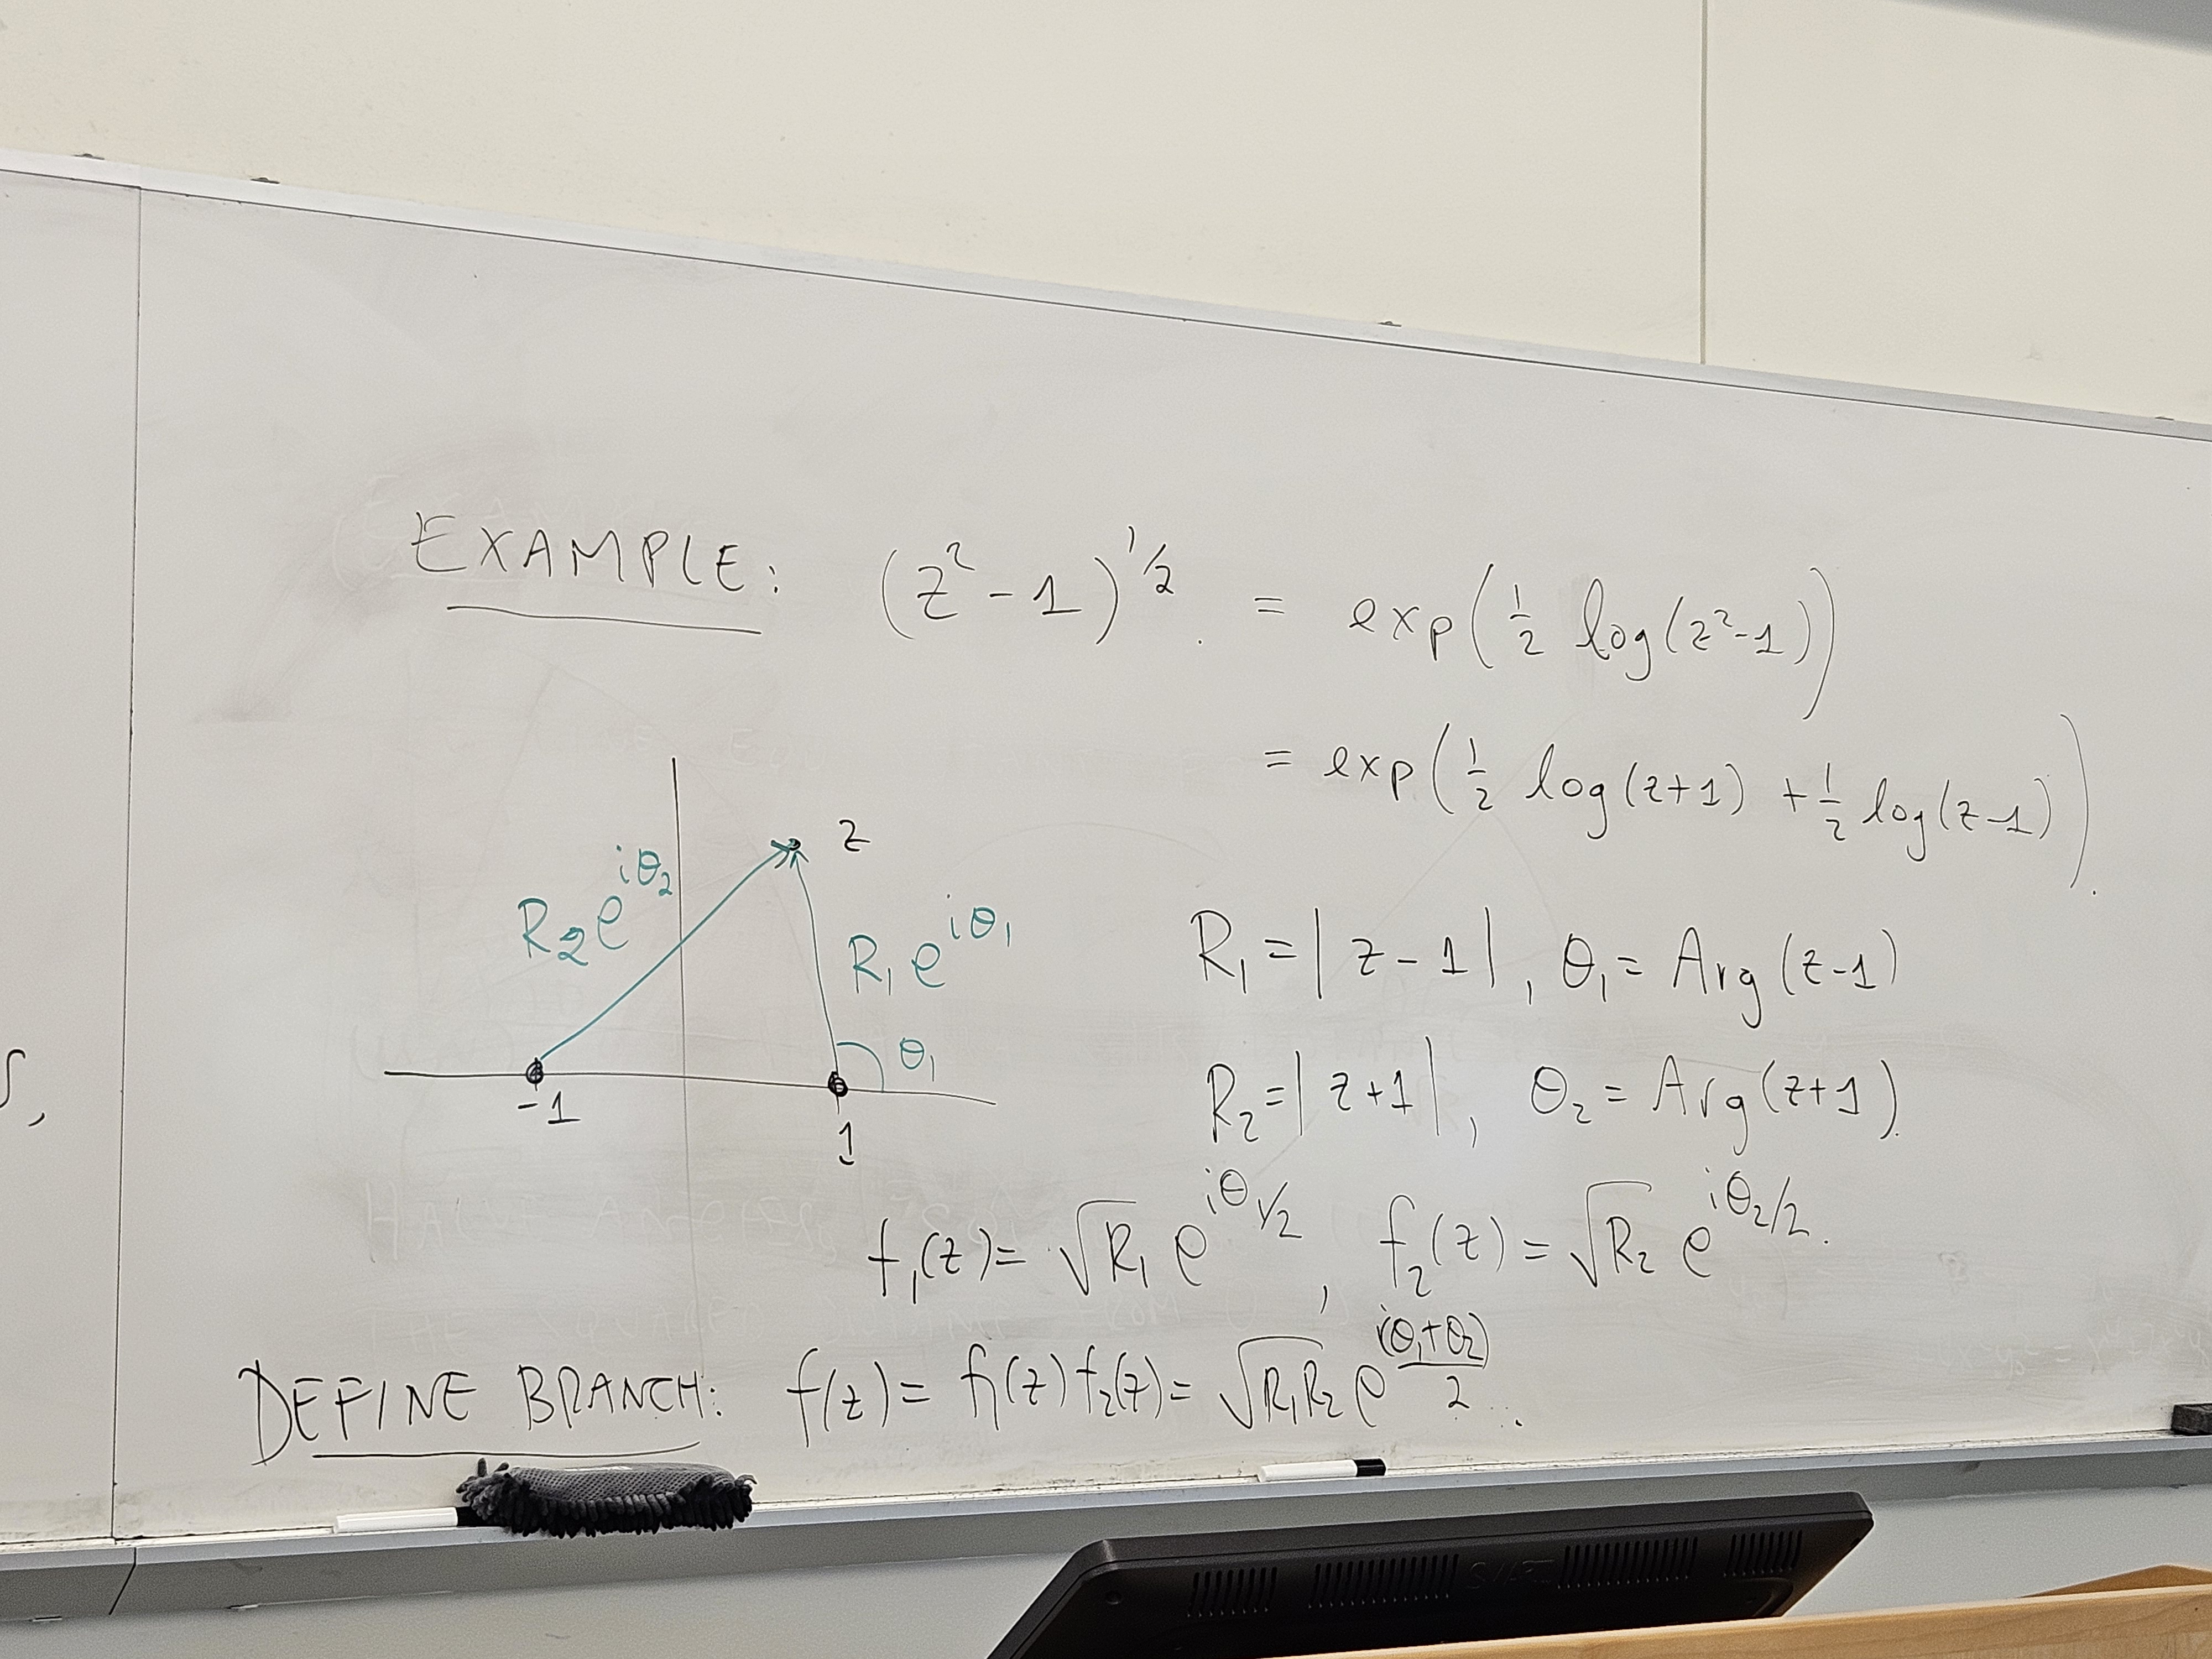 EXAMPLE: (z²-1)^{1/2}. = exp(1/2 log(z²-1))
= exp(1/2 log(z+1) + 1/2 log(z-1)).
z
R₂e^{iθ₂}
R₁e^{iθ₁}
θ₁
-1
1
R₁ = |z-1|, θ₁ = Arg(z-1)
R₂ = |z+1|, θ₂ = Arg(z+1).
f₁(z) = √R₁ e^{iθ₁/2}, f₂(z) = √R₂ e^{iθ₂/2}.
DEFINE BRANCH: f(z) = f₁(z) f₂(z) = √R₁R₂ e^{i(θ₁+θ₂)/2}...
S,